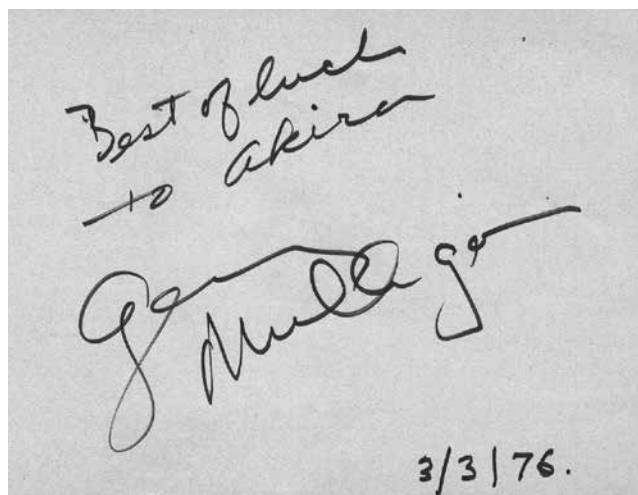 Best of luck
to Akira
Gerry
Mulligan
3/3/76.